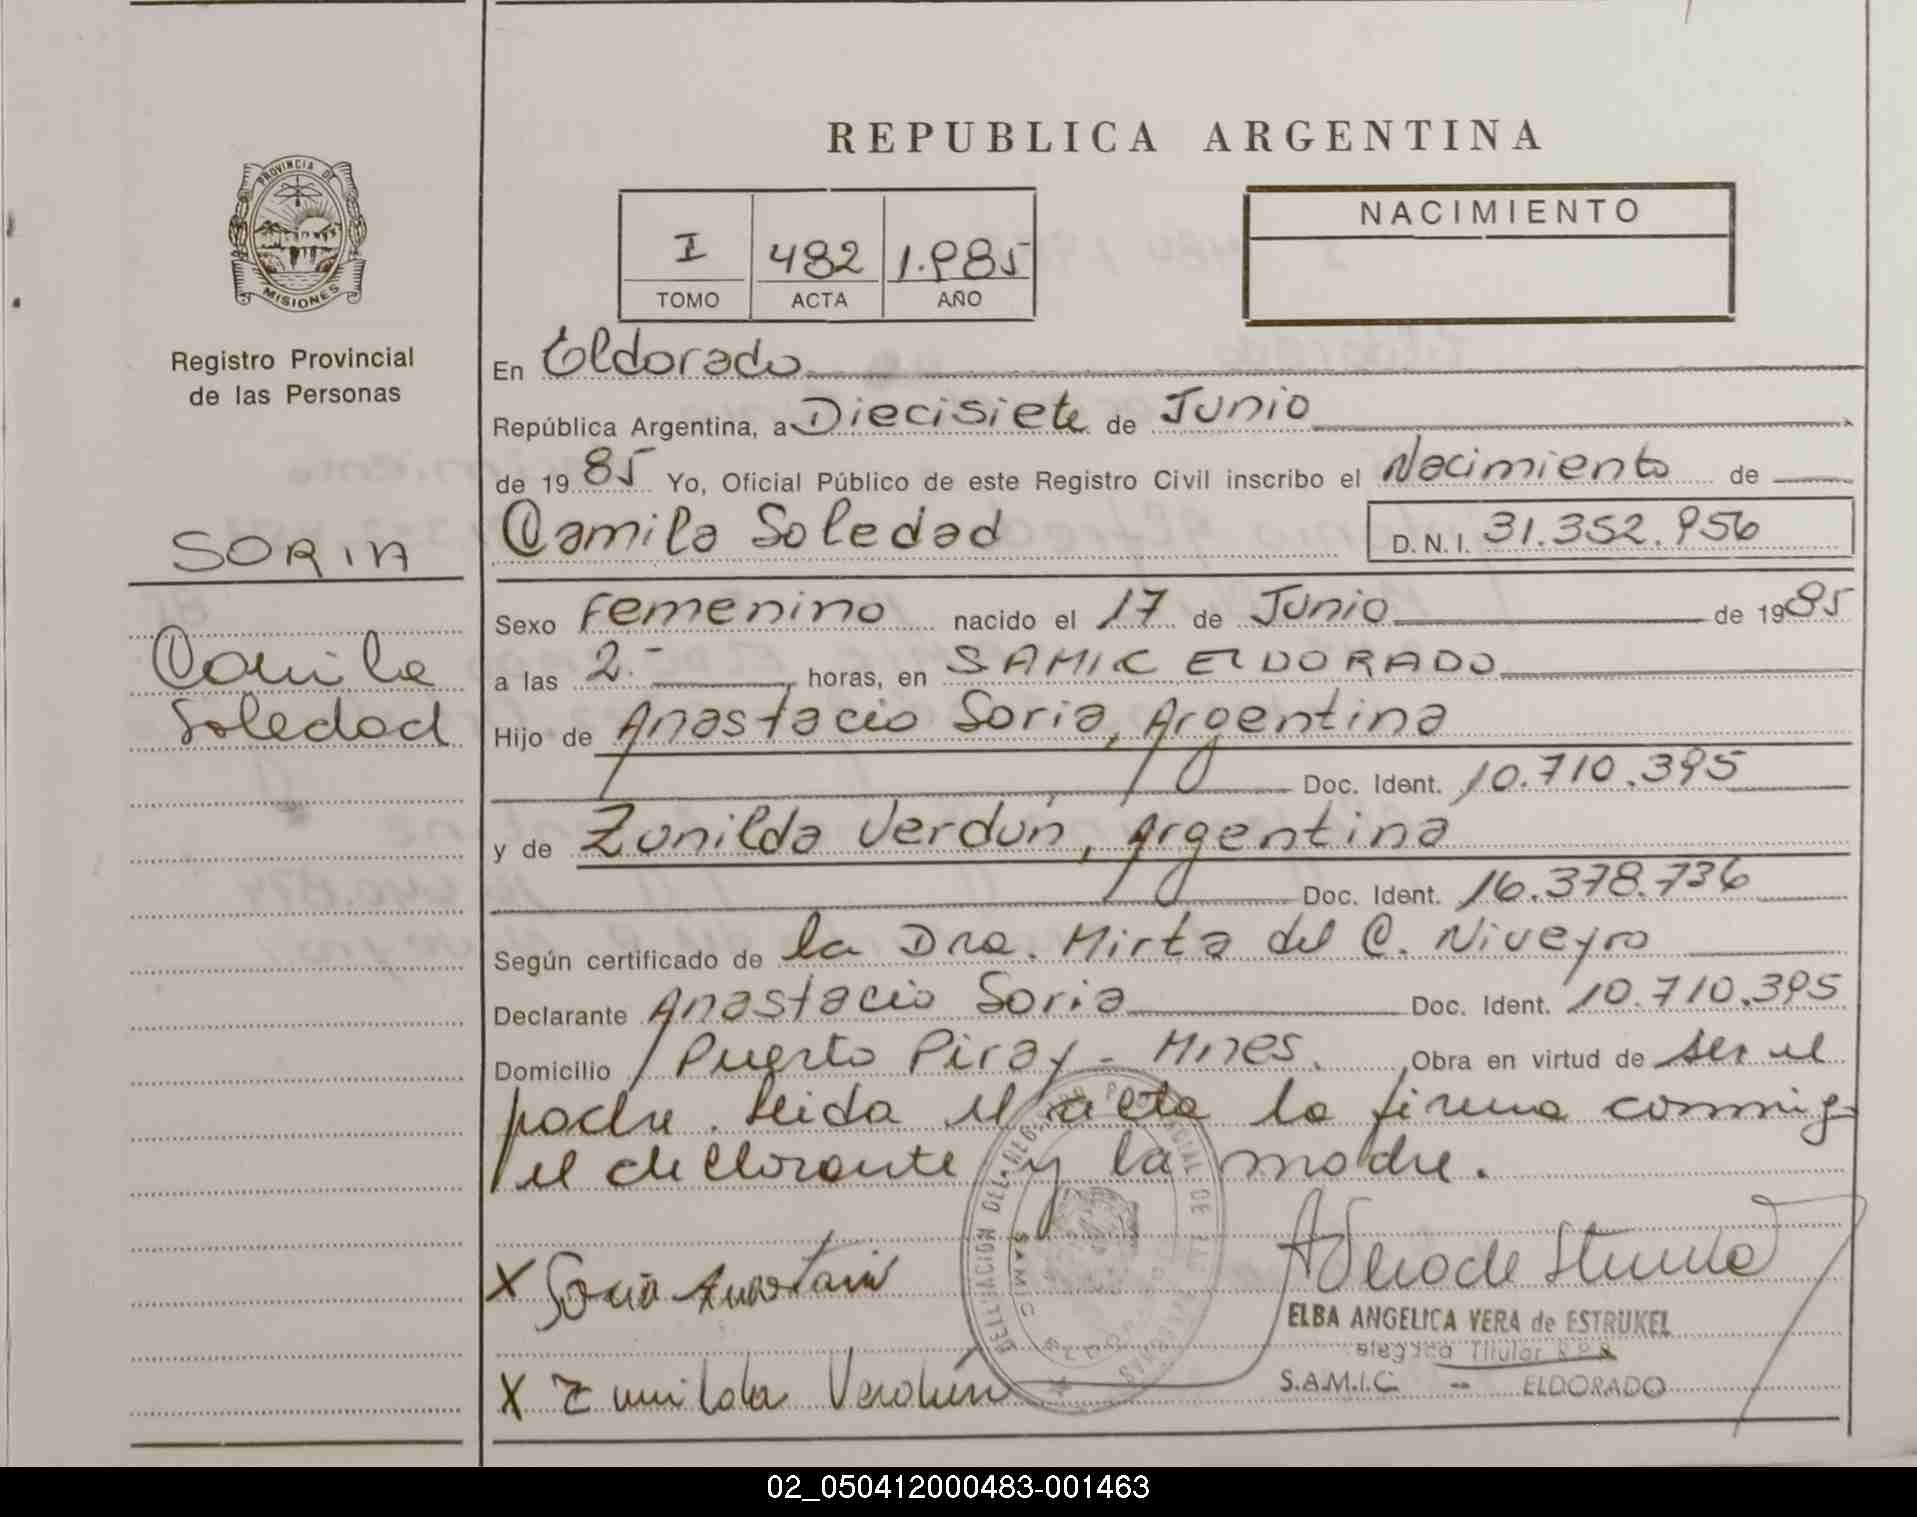 REPUBLICA ARGENTINA
PROVINCIA DE
MISIONES
Registro Provincial
de las Personas
SORIA
Camila
Soledad
I 482 1.985
TOMO ACTA AÑO
NACIMIENTO
En Eldorado
República Argentina, a Diecisiete de Junio
de 1985 Yo, Oficial Público de este Registro Civil inscribo el Nacimiento de
Camila Soledad D.N.I. 31.352.956
Sexo Femenino nacido el 17 de Junio de 1985
a las 2.- horas, en SAMIC ELDORADO
Hijo de Anastacio Soria, Argentina
Doc. Ident. 10.710.395
y de Zunilda Verdún, Argentina
Doc. Ident. 16.378.736
Según certificado de la Dra. Mirta del C. Niveyro
Declarante Anastacio Soria Doc. Ident. 10.710.395
Domicilio Puerto Piray - Mnes. Obra en virtud de ser el
padre. Leida el acta la firma conmig
el declarante y la madre.
X Soria Anastacio
ELBA ANGELICA VERA de ESTRUKEL
Titular R.P.P.
S.A.M.I.C. -- ELDORADO
X Zunilda Verdún
02_050412000483-001463